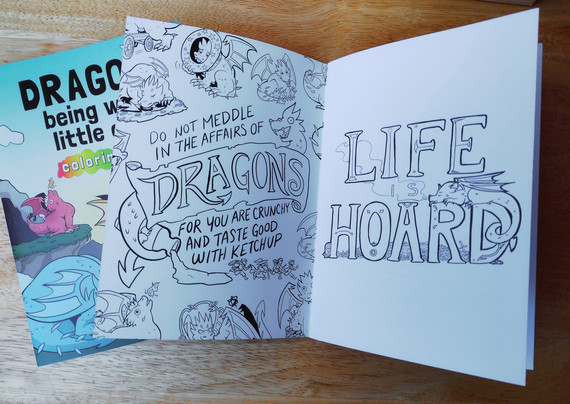 DRAGO
being w
little
colorin
DO NOT MEDDLE
IN THE AFFAIRS OF
DRAGONS
FOR YOU ARE CRUNCHY
AND TASTE GOOD
WITH KETCHUP
LIFE
IS
HOARD